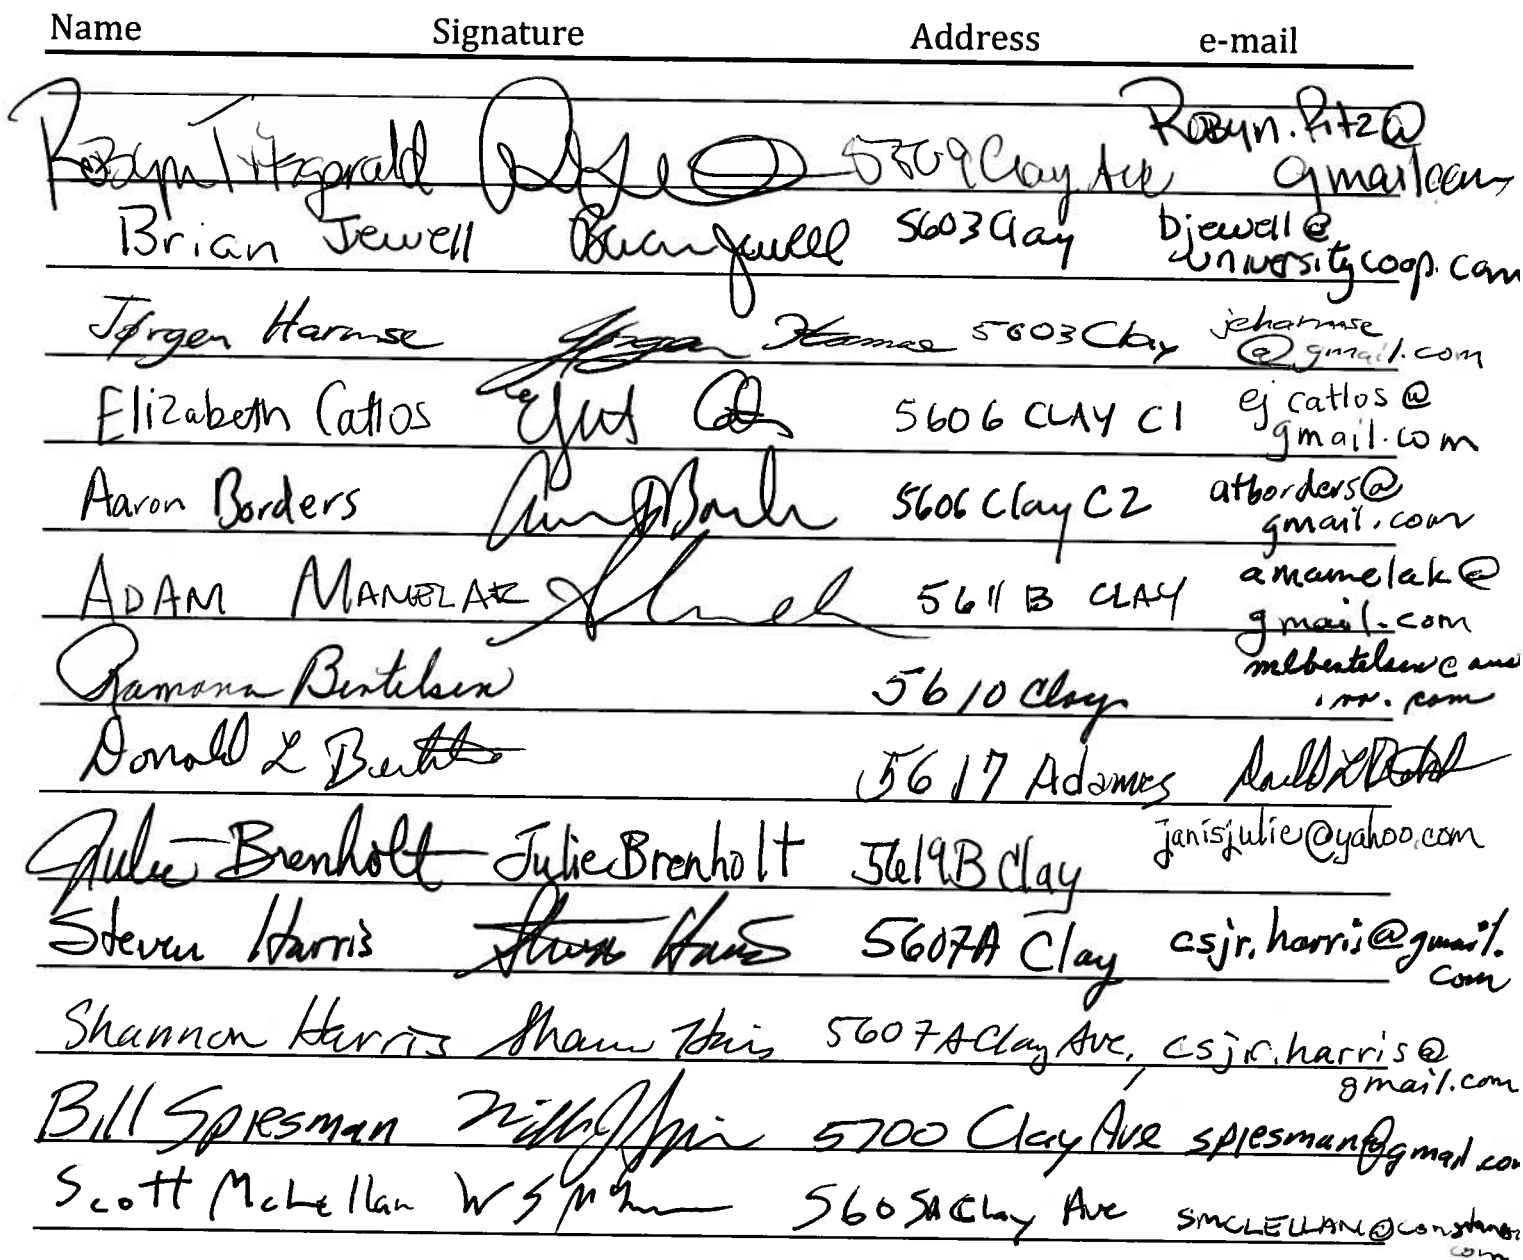 Name Signature Address e-mail
Robyn Fitzgerald 5309 Clay Ave Robyn.fitz@
gmail.com
Brian Jewell Brian Jewell 5603 Clay bjewell@
universitycoop.com
Jørgen Harmse Jørgen Harmse 5603 Clay jeharmse
@gmail.com
Elizabeth Catlos 5606 CLAY C1 ejcatlos@
gmail.com
Aaron Borders 5606 Clay C2 atborders@
gmail.com
ADAM MAMELAK 5611 B CLAY amamelak@
gmail.com
Ramona Bertelsen 5610 Clay mlbertelsen@aus
.rr.com
Donald L 5617 Adams
Julie Brenholt Julie Brenholt 5619B Clay janisjulie@yahoo.com
Steven Harris Steven Harris 5607A Clay csjr.harris@gmail.
com
Shannon Harris 5607A Clay Ave, csjr.harris@
gmail.com
Bill Spiesman 5700 Clay Ave spiesman@gmail.com
Scott McLellan 5605A Clay Ave